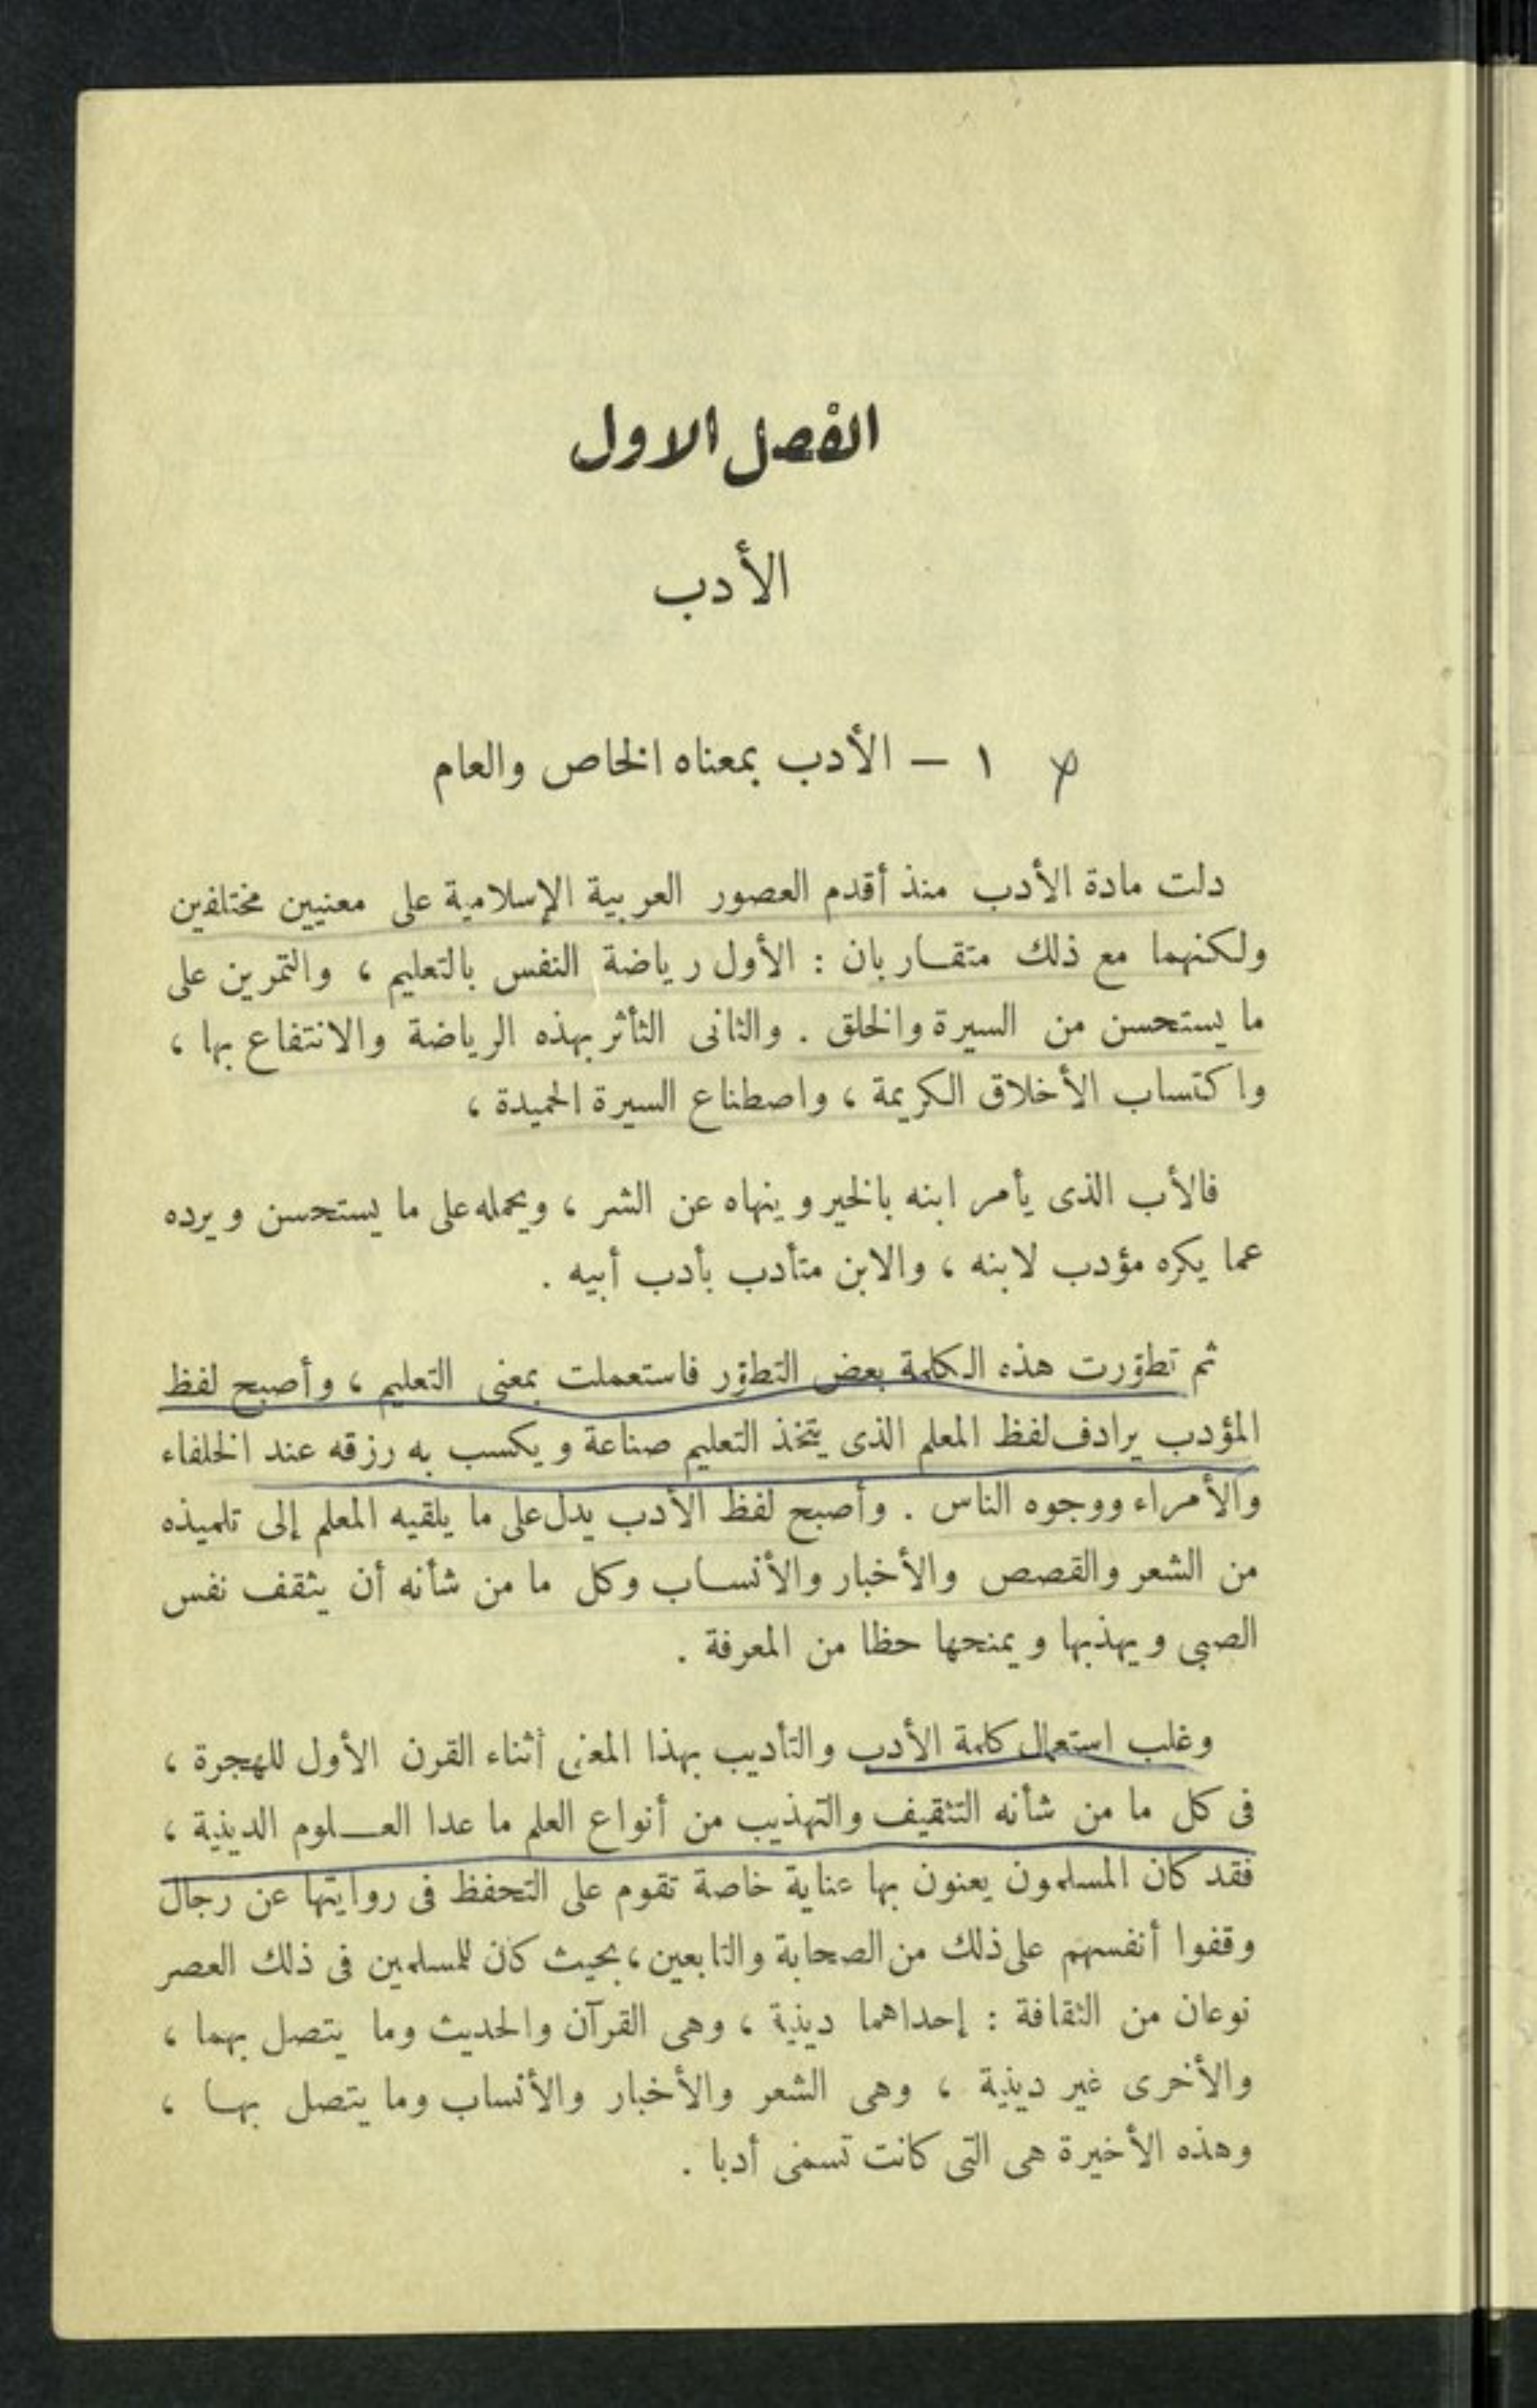 الفصل الاول
الأدب
١ — الأدب بمعناه الخاص والعام
دلت مادة الأدب منذ أقدم العصور العربية الإسلامية على معنيين مختلفين
ولكنهما مع ذلك متقاربان : الأول رياضة النفس بالتعليم ، والتمرين على
ما يستحسن من السيرة والخلق . والثانى التأثر بهذه الرياضة والانتفاع بها ،
واكتساب الأخلاق الكريمة ، واصطناع السيرة الحميدة ،
فالأب الذى يأمر ابنه بالخير وينهاه عن الشر ، ويحمله على ما يستحسن ويرده
عما يكره مؤدب لابنه ، والابن متأدب بأدب أبيه .
ثم تطوّرت هذه الكلمة بعض التطوّر فاستعملت بمعنى التعليم ، وأصبح لفظ
المؤدب يرادف لفظ المعلم الذى يتخذ التعليم صناعة ويكسب به رزقه عند الخلفاء
والأمراء ووجوه الناس . وأصبح لفظ الأدب يدل على ما يلقيه المعلم إلى تلميذه
من الشعر والقصص والأخبار والأنساب وكل ما من شأنه أن يثقف نفس
الصبى ويهذبها ويمنحها حظا من المعرفة .
وغلب استعمال كلمة الأدب والتأديب بهذا المعنى أثناء القرن الأول للهجرة ،
فى كل ما من شأنه التثقيف والتهذيب من أنواع العلم ما عدا العلوم الدينية ،
فقد كان المسلمون يعنون بها عناية خاصة تقوم على التحفظ فى روايتها عن رجال
وقفوا أنفسهم على ذلك من الصحابة والتابعين ، بحيث كان للمسلمين فى ذلك العصر
نوعان من الثقافة : إحداهما دينية ، وهى القرآن والحديث وما يتصل بهما ،
والأخرى غير دينية ، وهى الشعر والأخبار والأنساب وما يتصل بها ،
وهذه الأخيرة هى التى كانت تسمى أدبا .